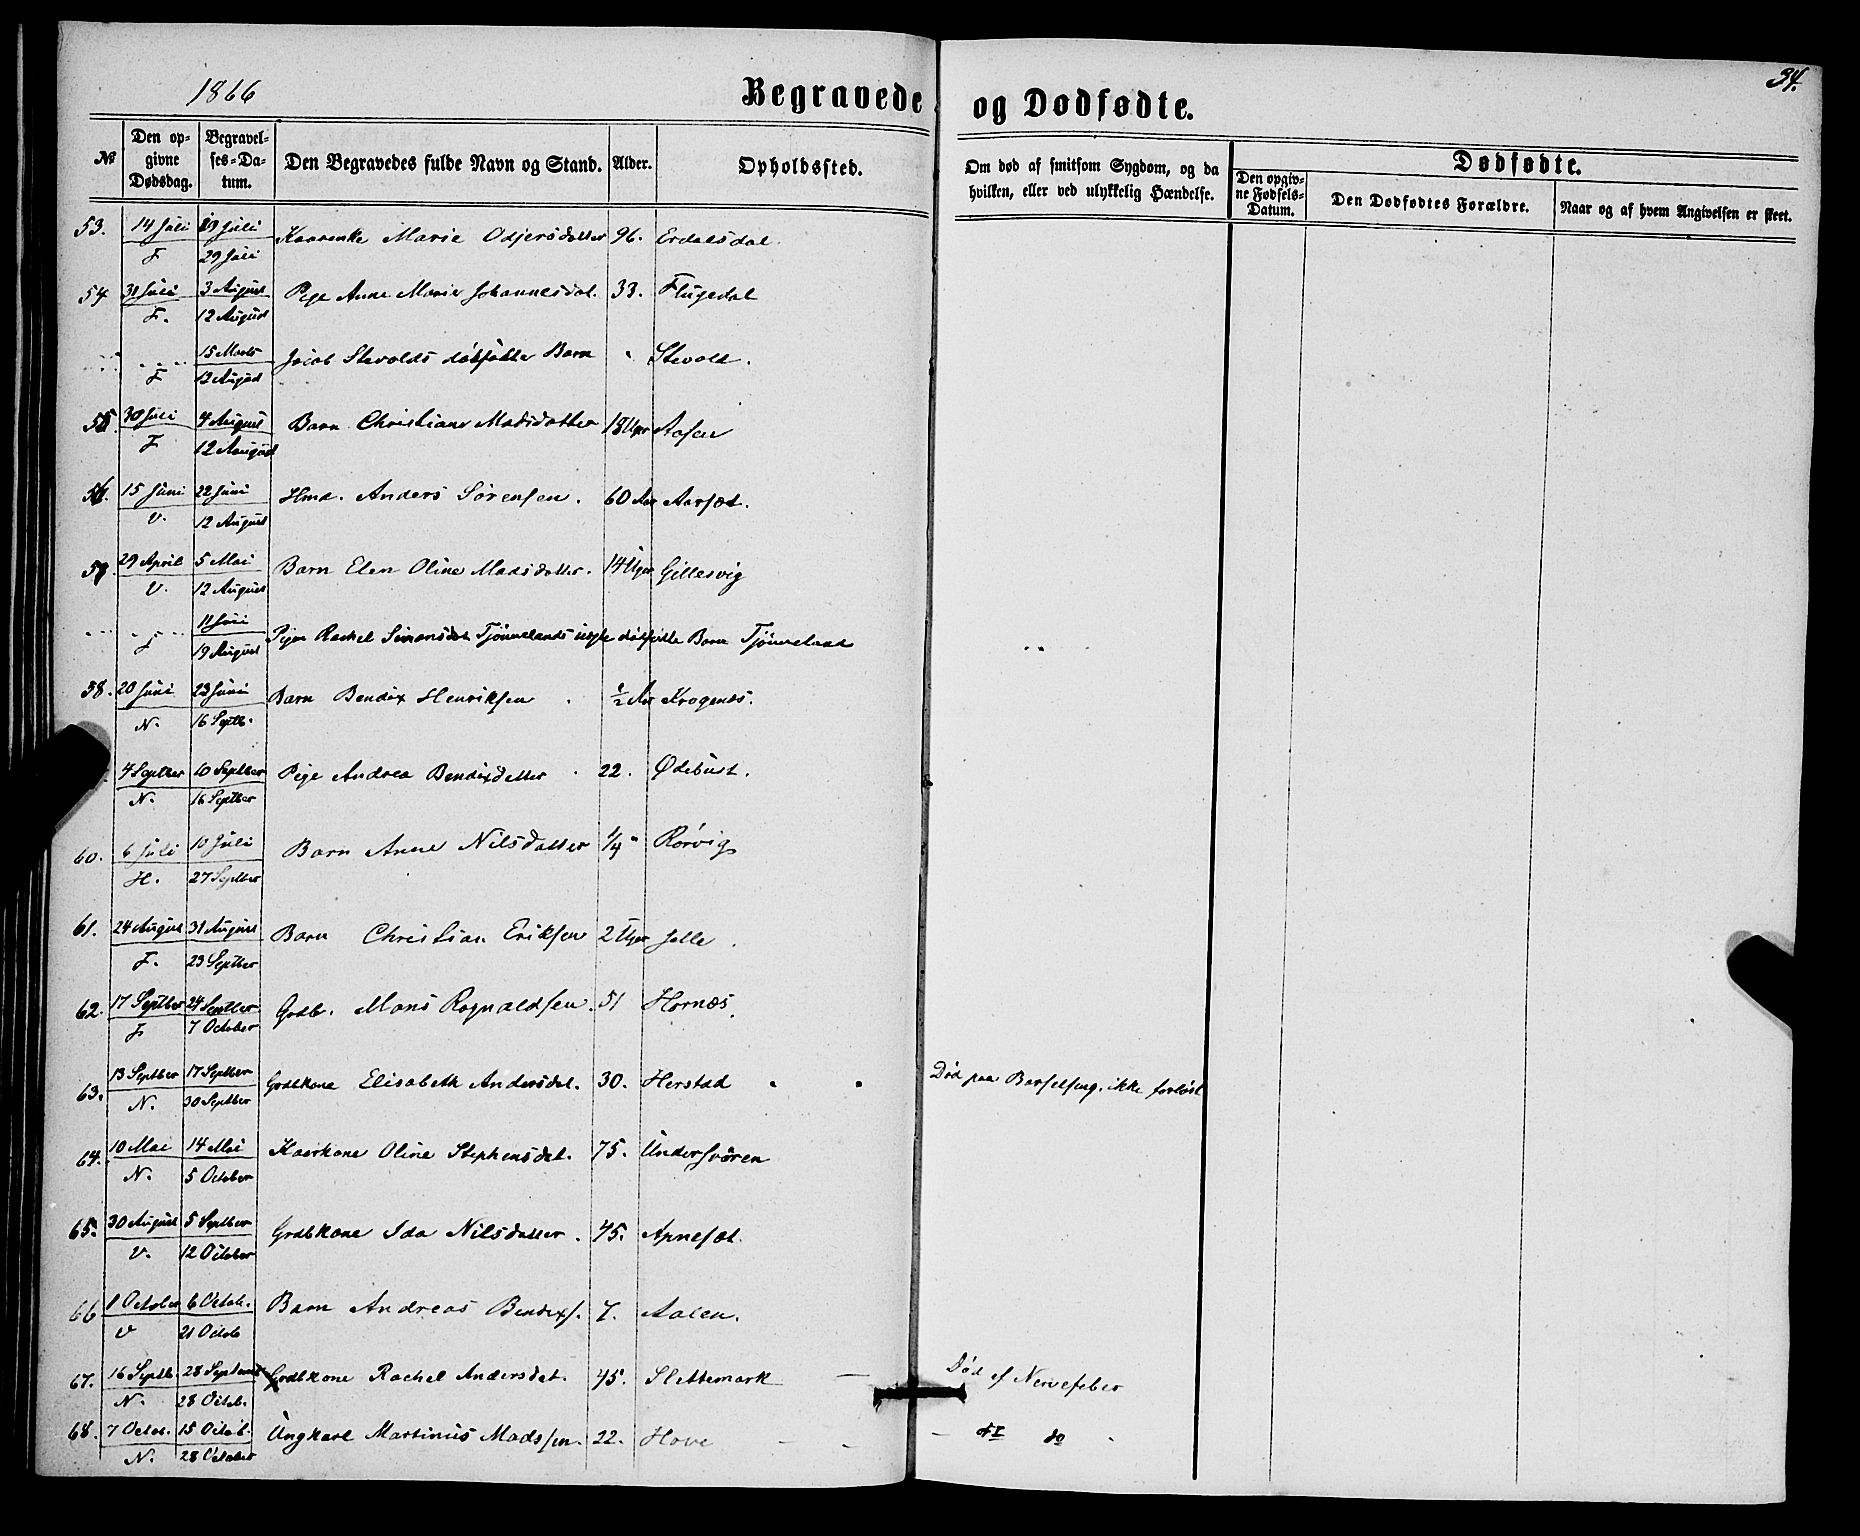 1866 Begravede og Dødfødte. 34.
№ Den opgivne Dødsdag. Begravelses-Datum. Den Begravedes fulde Navn og Stand. Alder. Opholdssted. Om død af smitsom Sygdom, og da hvilken, eller ved ulykkelig Hændelse. Dødfødte. Den opgivne Fødsels-Datum. Den Dødfødtes Forældre. Naar og af hvem Angivelsen er skeet.
53. 14 Juli 19 Juli Kaarenke Marie Odjersdatter 96. Erdalsdal
F 29 Juli
54 31 Juli 3 August Pige Anne Marie Johannesdat. 33. Flugedal
F. 12 August
15 Marts Jacob Stevolds dødfødte Barn " Stevold.
F 12 August
55 30 Juli 4 August Barn Christiane Madsdatter 18 Uger Aasen
F 12 August
56. 15 Juni 22 Juni Hmd. Anders Sørensen. 60 Aar Aarsæt.
V. 12 August
57. 29 April 5 Mai Barn Elen Oline Madsdatter. 14 Uger Gillesvig
V. 12 August
11 Juli Pigen Rachel Simonsdat Tjønnelands uægte dødfødte Barn Tjønneland
F 19 August
58. 20 Juni 23 Juni Barn Bendix Henriksen ½ Aar Krogenæs.
N. 16 Septb.
4 Septber 10 Septber Pige Andrea Bendixdatter 22. Ødebust.
N. 16 Septber
60. 6 Juli 10 Juli Barn Anne Nilsdatter ¼ " Rørvig
H. 27 Septber
61. 24 August 31 August Barn Christian Eriksen 2 Uger Jelle.
F. 23 Septber
62. 17 Septber 24 Septber Grdb. Mons Rognaldsen. 51 Hornæs.
F 7 October
63. 13 Septber 17 Septber Grdbkone Elisabeth Andersdat. 30. Herstad Død paa Barselseng, ikke forløst
N. 30 Septber
64. 10 Mai 14 Mai Kaarkone Oline Stephensdat. 75. Undersøren
N. 5 October
65. 30 August 5 Septber Grdbkone Ida Nilsdatter. 45. Apnesæt.
V. 12 October
66 1 October 6 Octob. Barn Andreas Bendixs. 7. Aalen.
V 21 Octob
67. 16 Septb. 28 Septemb Grdbkone Rachel Andersdat. 45. Slettemark — Død af Nervefeber
N. 28 Octob.
68. 7 Octob. 15 Octob. Ungkarl Martinus Madssen. 22. Hove — — do do
N. 28 October